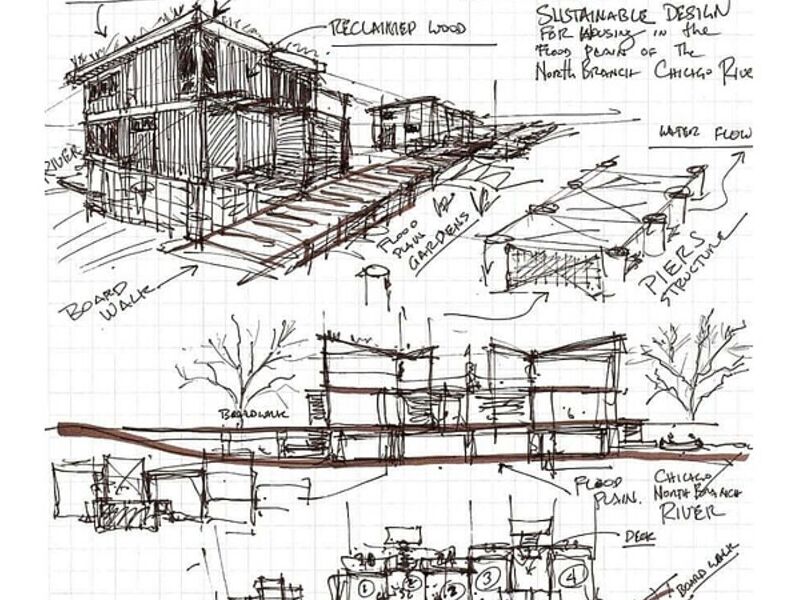 RECLAIMED WOOD
SUSTAINABLE DESIGN
FOR HOUSING IN the
FLOOD PLAIN OF THE
NORTH BRANCH CHICAGO RIVE
WATER FLOW
RIVER
FLOOD
PLAIN
GARDENS
PIERS
STRUCTURE
BOARD
WALK
BOARDWALK
FLOOD
PLAIN.
CHICAGO
NORTH BRANCH
RIVER
DECK
BOARDWALK
1
2
2
3
4